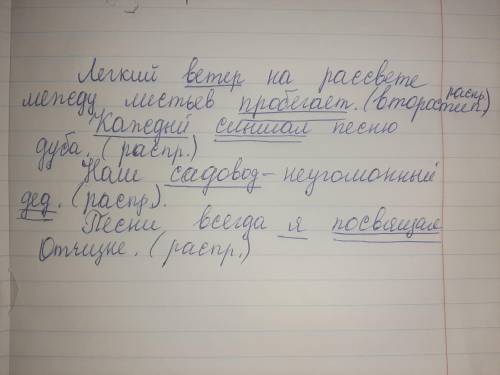 Легкий ветер на рассвете
между листьев пробегает. (второстеп.) распр
Каждый слышал песню
дуба. (распр.)
Наш садовод - неугомонный
дед. (распр).
Песни всегда я посвящал
Отчизне. (распр.)